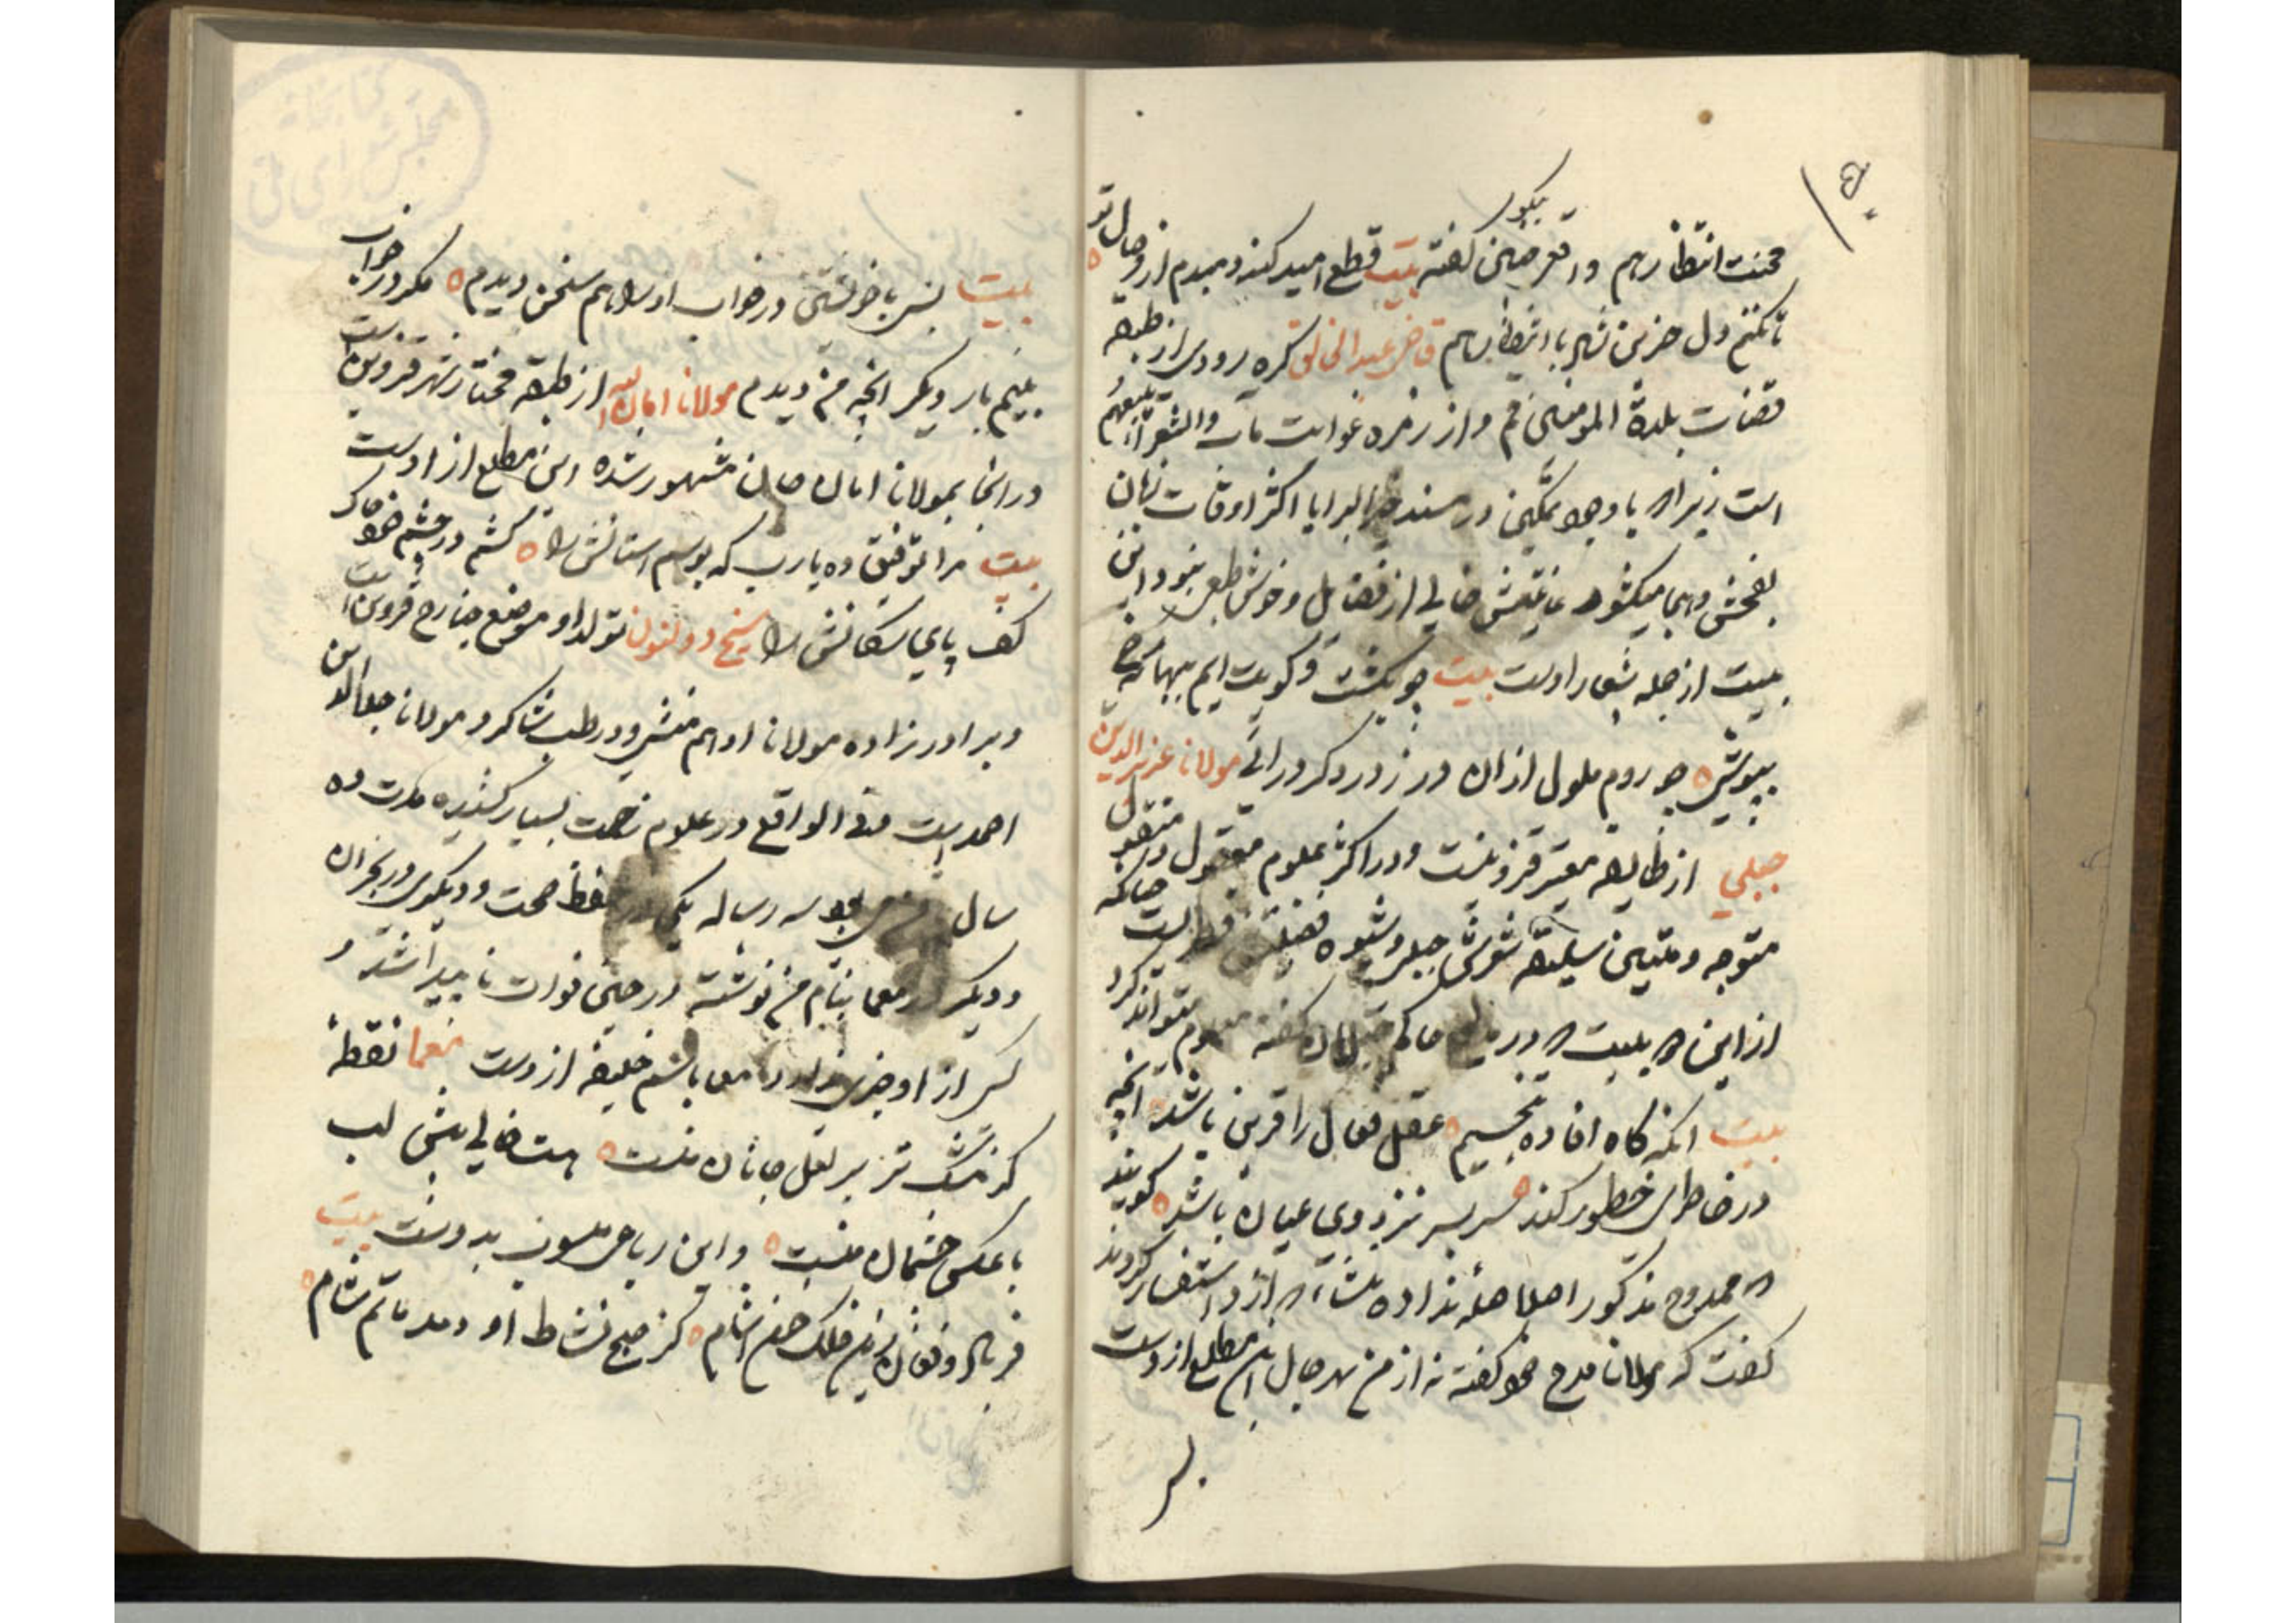 محنت انتظار هم واقع چنین گفته بیت قطع امید کند دمبدم از وصال تو
نیکو
تا نکنم دل حزین شاد با انتظار هم قاضی عبدالخالق کره رودی از طبقه
قضات بلدة المومنین قم و از زمره غوایت مآب والشعرآء یتبعهم
است زیرا که با وجود تمکین در مسند خیر البرایا اکثر اوقات زبان
بفحش و هجا میکشود غایتش خالی از فضایل و خوش طبعی نبود این
بیت از جمله اشعار اوست بیت چو بگشت کویت ایم ببهانه
بپوشی چو روم ملول ازان در ز در دکر درائی مولانا عزیز الدین
جبلی از طایفه معتبر قزوینست و در اکثر علوم معقول و منقول
متوجه و متین سلیقه شعرش جبلی و شیوه فضیلتش چنانکه
از این که بیت که در مدح حاکم جیلان گفته معلوم میتواند کرد
بیت انکه گاه افاده تنجیم عقل فعال را قرین باشد آنچه
در خاطرش خطور کند سر بسر نزد وی عیان باشد گویند
که ممدوح مذکور اصلا صله نداده بشاعر که ازو استفسار کردند
گفت که مولانا مدح خود گفته نه از من بهر حال این مطلع ازوست
بیت بسی با خویشتن در خواب او را هم سخن دیدم مگر در خواب
بینم بار دیگر انچه من دیدم مولانا امان الله از طبقه مختار شهر قزوین است
در انجا بمولانا امان جان مشهور شده این مطلع از اوست
بیت مرا توفیق ده یارب که بوسم استانش را کشم در چشم خود خاک
کف پای سگانش را شیخ ذوالنون تولد او موضع جنارج قزوین است
و برادر زاده مولانا ادهم منشی و در طب شاگرد مولانا جلال الدین
احمد است فی الواقع در علوم زحمت بسیار کشیده مدت ده
سال بود سه رساله یکی در حفظ صحت و دیگری در بحران
و دیگر در معما بنام من نوشته در حین فوات ناپیدا شد و
کس از او خبری ندارد معما باسم خلیفه ازوست معما نقطهٔ
کز مشک تر بر لعل جانان منست هست خالی پیش لب
یا عکس چشمان منست و این رباعی منسوب بدوست بیت
فریاد و فغان ازین فلک خون اشام کز صبح نشاط او دمد ماتم شام